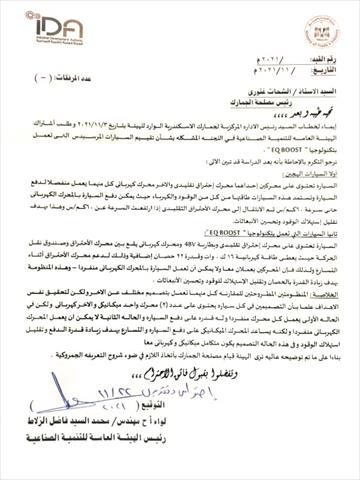 IDA
Industrial Development Authority
الهيئة العامة للتنمية الصناعية
رقم القيد: /٢٠٢١ م
التاريخ: /١١/ ٢٠٢١ م
عدد المرفقات: ( - )
السيد الاستاذ / الشحات غتورى
رئيس مصلحة الجمارك
تحية طيبة وبعد ,,,,
إيماء لخطاب السيد رئيس الادارة المركزية لجمارك الاسكندرية الوارد للهيئة بتاريخ ٢٠٢١/١١/٣ وطلب أشتراك
الهيئة العامه للتنمية الصناعية فى اللجنه المشكله بشأن تقييم السيارات المرسيدس التى تعمل
بتكنولوجيا " EQ BOOST ".
نرجو التكرم بالإحاطة بأنه بعد الدراسة قد تبين الاتى :-
أولا السيارات الهجين :
السيارة تحتوى على محركين إحداهما محرك إحتراق تقليدى والاخر محرك كهربائى كل منهما يعمل منفصلا لدفع
السيارة وتستمد هذه السيارات طاقتها من كل من الوقود والكهرباء، حيث يمكن دفع السيارة بالمحرك الكهربائى
حتى سرعة ٠٠كم/س ثم الانتقال إلى محرك الاحتراق التقليدى إذا ارتفعت السرعة عن ٠٠كم/س وهذا بهدف
استهلاك الوقود وتحسين الأنبعاثات.
ثانيا السيارات التى تعمل بتكنولوجيا "EQ BOOST" :
السيارة تحتوى على محرك إحتراق تقليدى وبطارية 48V ومحرك كهربائى يقع بين محرك الإحتراق وصندوق نقل
الحركة حيث يعطى طاقة كهربائية ١٦ ك . وات وقدرة ٢٢ حصان إضافية وذلك لدعم محرك الأحتراق أثناء
التسارع ولذلك فإن المحركين يعملان معا ولا يمكن ان تعمل السيارة بالمحرك الكهربائى منفردا – وهذه المنظومة
بهدف زيادة القدرة بالحصان وتقليل الإستهلاك للوقود وتحسين الأنبعاثات.
الخلاصة : المنظومتين المطروحتين للمقارنه كل منهما تعمل بتصميم مختلف عن الاخر ولكن لتحقيق نفس
الاهداف علما بأن التصميمين فى كل سيارة يحتوى على عدد (٢) محرك واحد ميكانيكى والاخر كهربائى ولكن فى
الحاله الأولى يعمل كل محرك منفردا وله قدره على دفع السياره والحالة الثانية لا يمكن ان يعمل المحرك
الكهربائى منفردا و لكنه يساعد المحرك الميكانيكى على دفع السياره و التسارع بهدف زيادة قدرة الدفع و تقليل
استهلاك الوقود و فى هذه الحاله التصميم يكون متكامل ميكانيكى و كهربائى معا
بناءا على ما تم توضيحة عاليه ترى الهيئة قيام مصلحة الجمارك باتخاذ اللازم فى ضوء شروح التعريفه الجمركية.
وتفضلوا بقبول فائق الاحترام,,,
١١/٢٢
٢٠٢١
التوقيع (
)
لواء أ ح مهندس/ محمد السيد فاضل الزلاط
رئيس الهيئة العامة للتنمية الصناعية